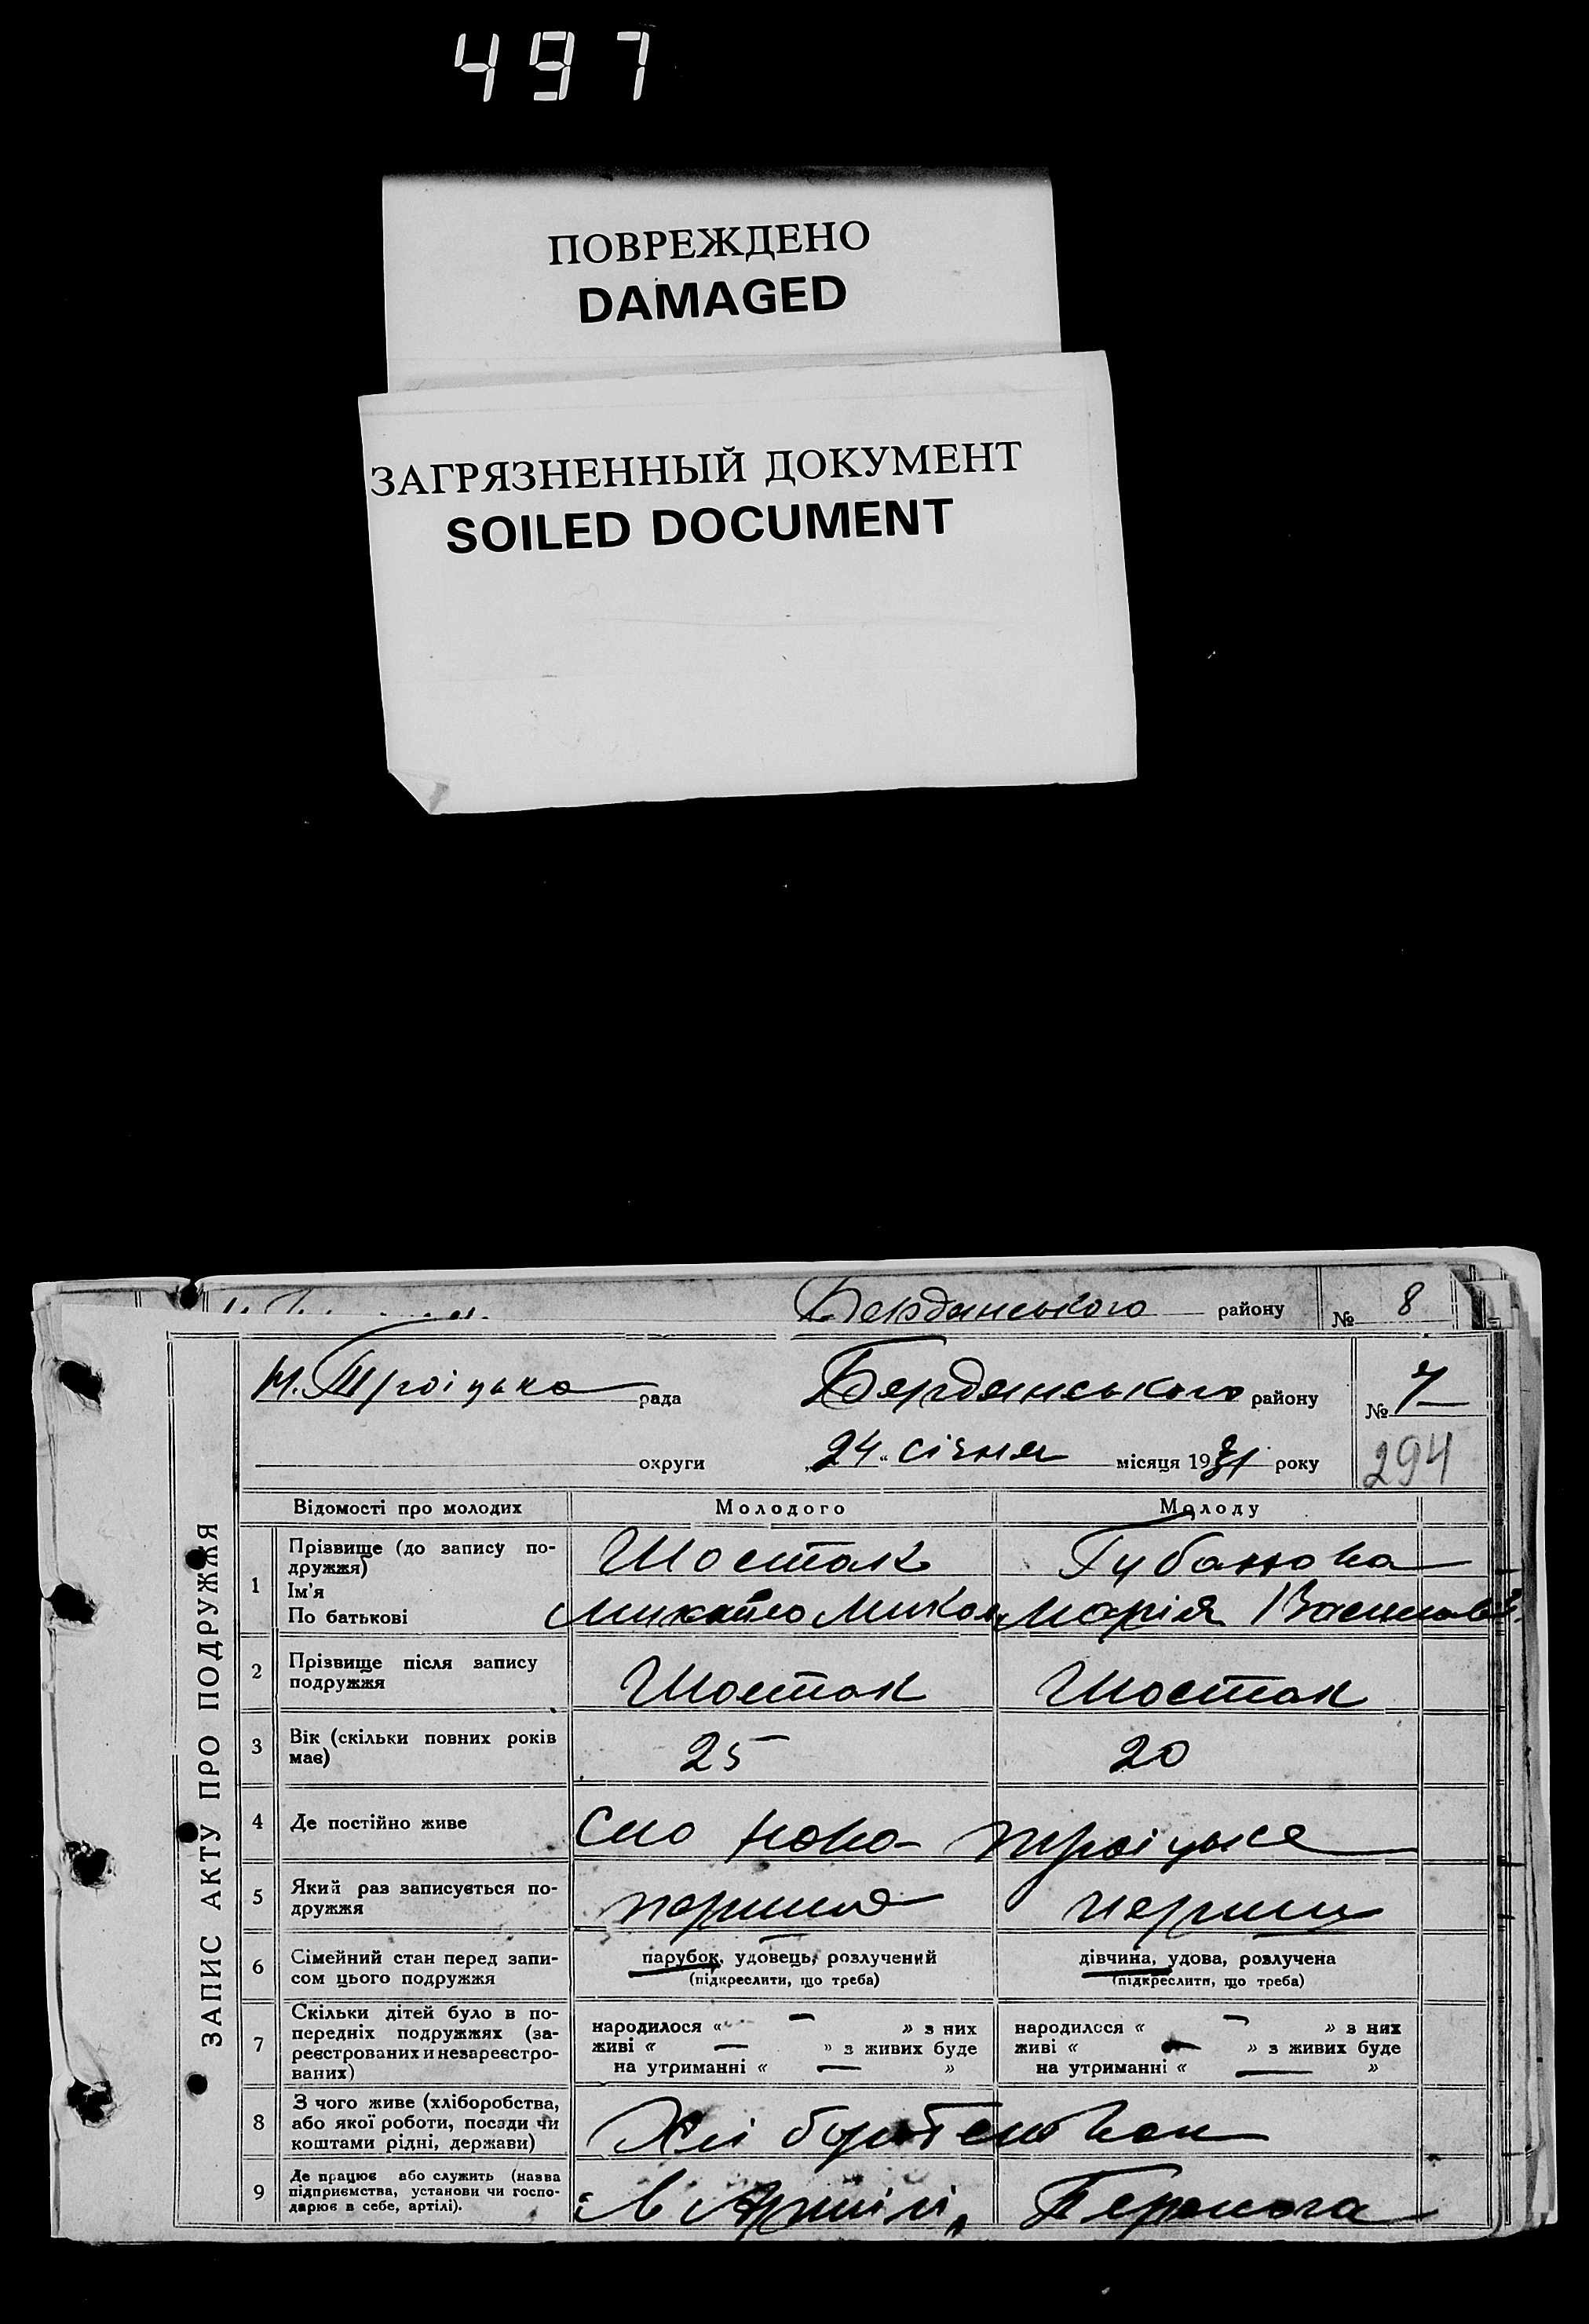 497
ПОВРЕЖДЕНО
DAMAGED
ЗАГРЯЗНЕННЫЙ ДОКУМЕНТ
SOILED DOCUMENT
Бердянського району № 8
ЗАПИС АКТУ ПРО ПОДРУЖЖЯ
Н. Троіцька рада Бердянського району № 7
округи „24“ січня місяця 1931 року 294
Відомості про молодих Молодого Молоду
1 Прізвище (до запису по-
дружжя) Шостак Губанова
Ім'я
По батькові Михайло Микол Марія Василів
2 Прізвище після запису
подружжя Шостак Шостак
3 Вік (скільки повних років
має) 25 20
4 Де постійно живе Село Ново-Троіцьке
5 Який раз записується по-
дружжя перший перший
6 Сімейний стан перед запи-
сом цього подружжя
парубок, удовець, розлучений
(підкреслити, що треба)
дівчина, удова, розлучена
(підкреслити, що треба)
7 Скільки дітей було в по-
передніх подружжях (за-
реєстрованих и незареєстро-
ваних)
народилося « — » з них
живі « — » з живих буде
на утриманні « — »
народилося « — » з них
живі « — » з живих буде
на утриманні « — »
8 З чого живе (хліборобства,
або якої роботи, посади чи
коштами рідні, держави)
9 Де працює або служить (назва
підприємства, установи чи госпо-
дарює в себе, артілі).
в Артілі „